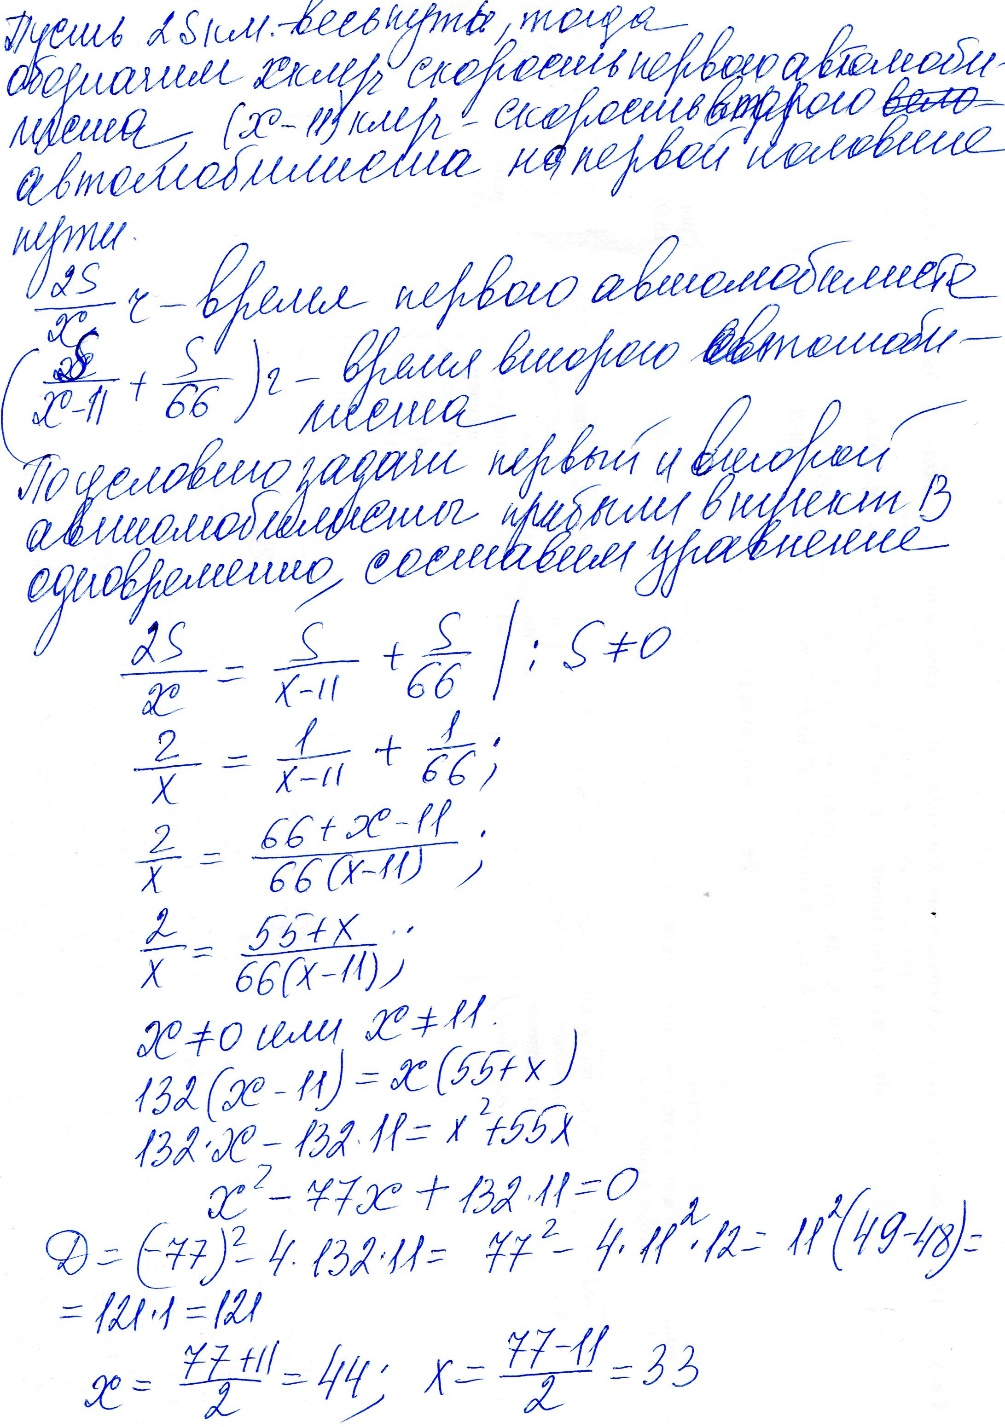 Пусть 2S км. - весь путь, тогда
обозначим x км/ч скорость первого автомоби-
листа, (x-11) км/ч - скорость второго вело-
автомобилиста на первой половине
пути.
2S/x ч - время первого автомобилиста
(S/(x-11) + S/66) ч - время второго автомоби-
листа
По условию задачи первый и второй
автомобилисты прибыли в пункт В
одновременно, составим уравнение
2S/x = S/(x-11) + S/66 | : S ≠ 0
2/x = 1/(x-11) + 1/66;
2/x = (66+x-11)/(66(x-11));
2/x = (55+x)/(66(x-11));
x ≠ 0 или x ≠ 11.
132(x-11) = x(55+x)
132·x - 132·11 = x²+55x
x² - 77x + 132·11 = 0
D = (-77)² - 4·132·11 = 77² - 4·11²·12 = 11²(49-48) =
= 121·1 = 121
x = (77+11)/2 = 44; x = (77-11)/2 = 33